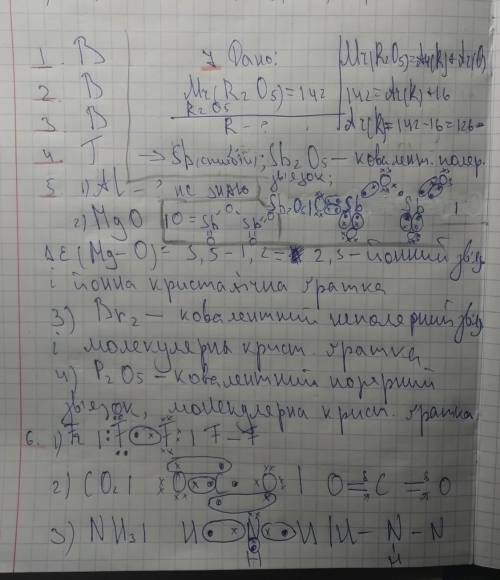 1. В
2. В
3. В
4. Г
7 Дано:
Mr(R2O5)=142
R2O5
R - ?
Mr(R2O5)=Ar(R)+Ar(O)
142=Ar(R)+16
Ar(R)=142-16=126
→ Sb(стибій); Sb2O5 – ковалент. поляр.
зв'язок;
5 1) Al – ? не знаю
2) MgO
ΔE(Mg-O)= 3,5-1,2= 2,3 – йонний зв'яз
і йонна кристалічна ґратка
3) Br2 – ковалентний неполярний зв'яз
і молекулярна крист. ґратка
4) P2O5 – ковалентний полярний
зв'язок, молекулярна крист. ґратка
6. 1) F2 | F F | F – F
2) CO2 | O C O | O = C = O
3) NH3 | H N H | H – N – N
H H